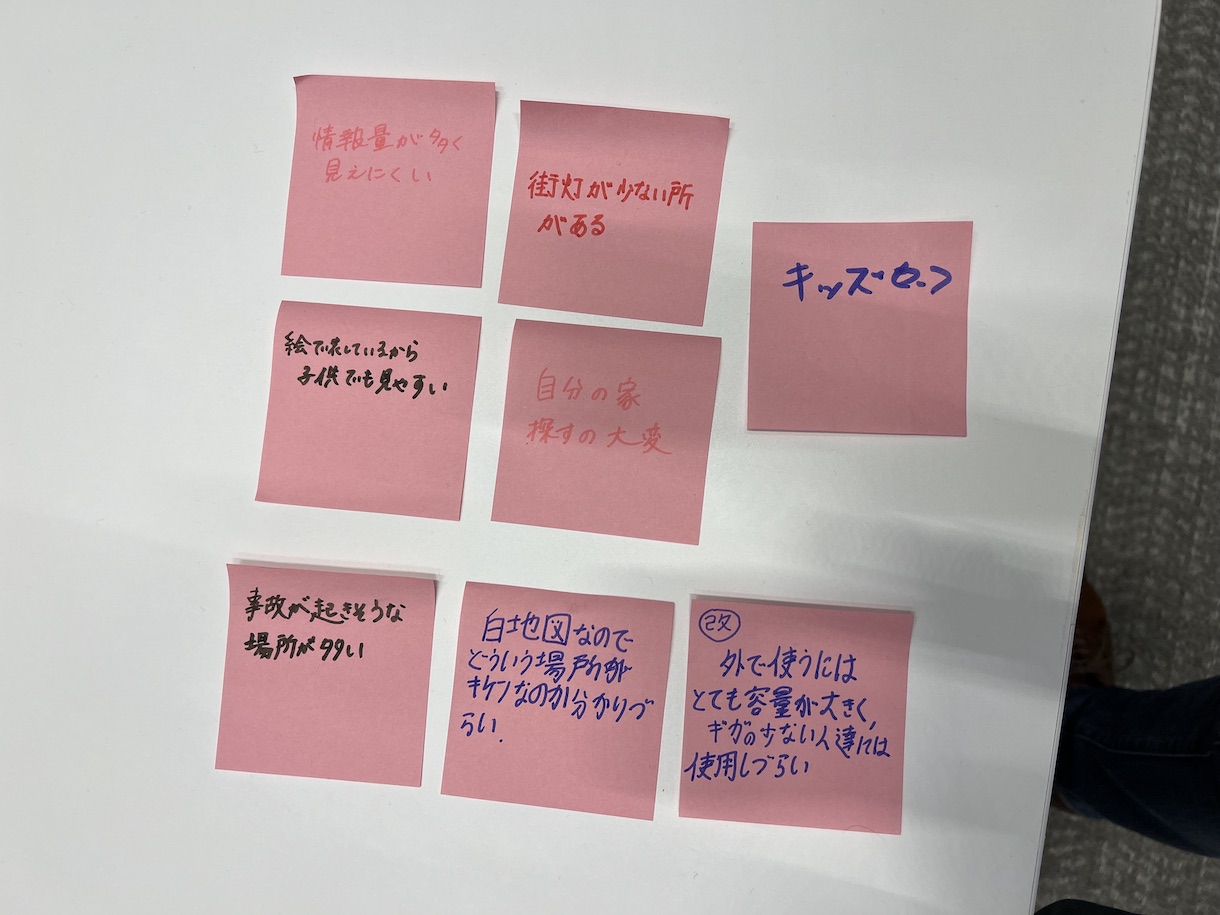 情報量が多く
見えにくい
街灯が少ない所
がある
キッズセーフ
絵で表しているから
子供でも見やすい
自分の家
探すの大変
事故が起きそうな
場所が多い
白地図なので
どういう場所が
キケンなのか分かりづ
らい.
改
外で使うには
とても容量が大きく,
ギガの少ない人達には
使用しづらい